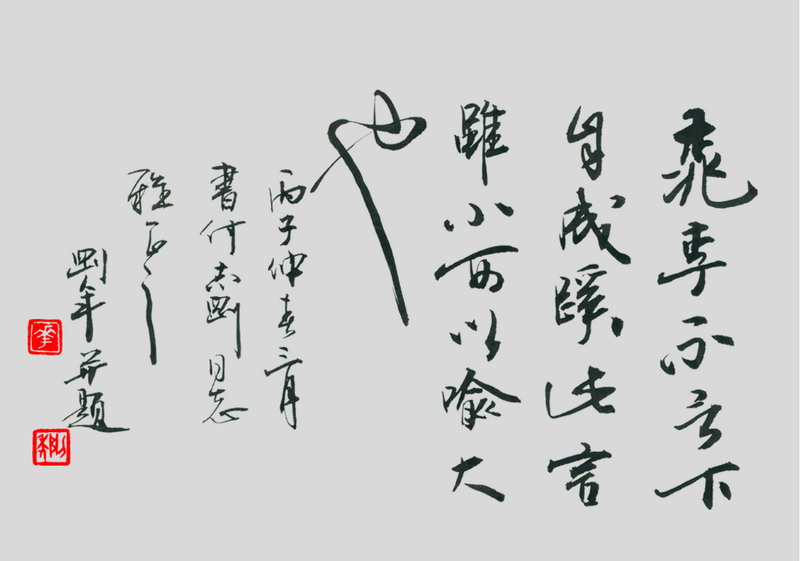 桃李不言下
自成蹊此言
雖小可以喻大
也
丙子仲春三月
書付志剛同志
雅正
剛年并題